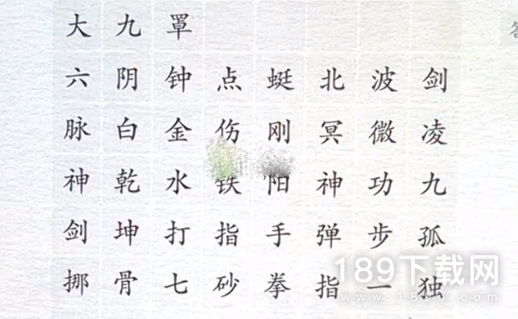 大九罩
答
六阴钟点蜓北波剑
脉白金伤刚冥微凌
神乾水铁阳神功九
剑坤打指手弹步孤
挪骨七砂拳指一独
189下载网